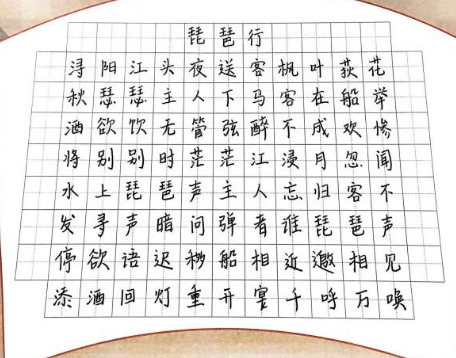 琵琶行
浔阳江头夜送客枫叶荻花
秋瑟瑟主人下马客在船举
酒欲饮无管弦醉不成欢惨
将别别时茫茫江浸月忽闻
水上琵琶声主人忘归客不
发寻声暗问弹者谁琵琶声
停欲语迟移船相近邀相见
添酒回灯重开宴千呼万唤